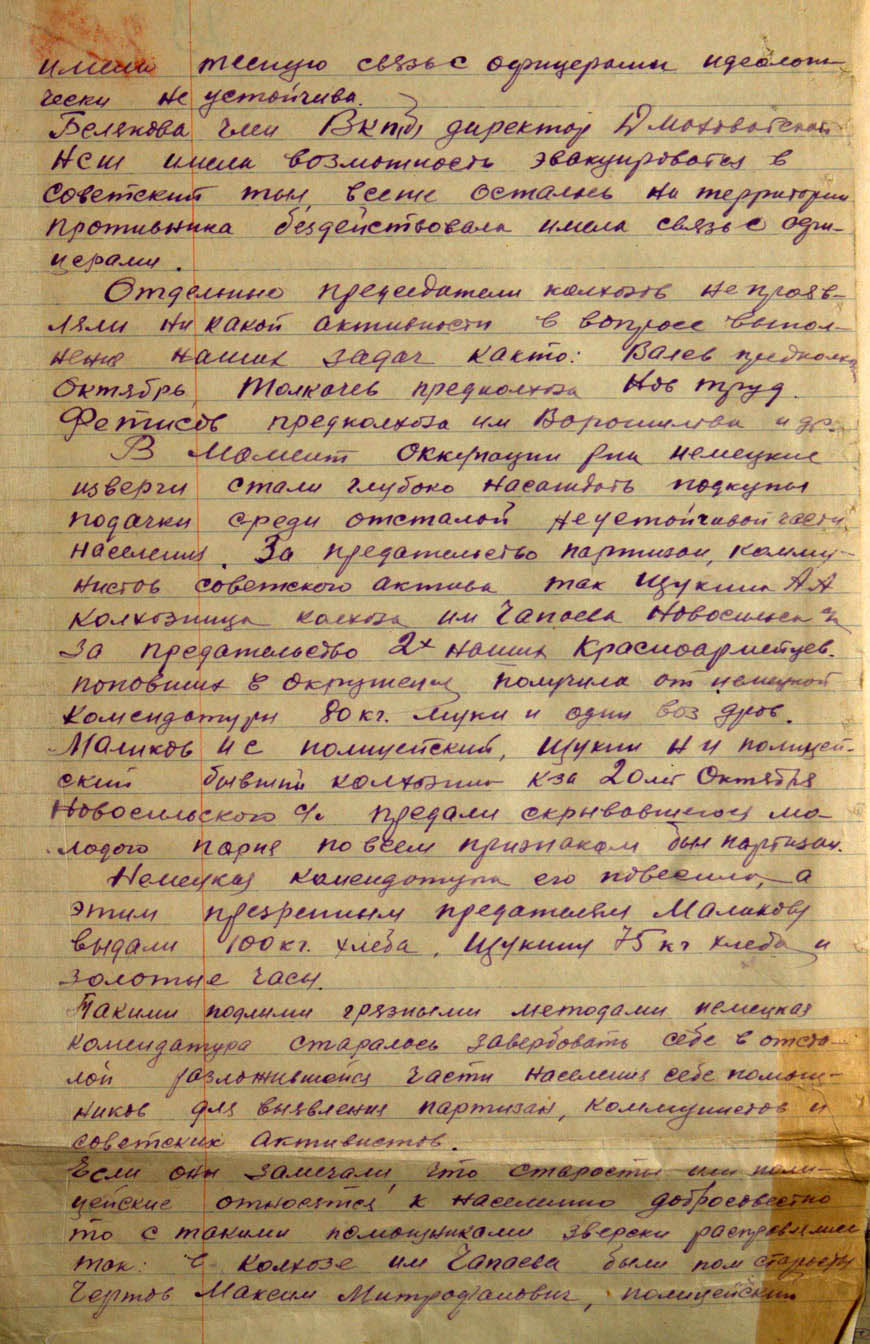 имели тесную связь с офицерами идеологи-
чески не устойчива.
Белякова член ВКП(б) директор
НСШ имела возможность эвакуироватся в
советский тыл, все же осталось на территории
противника бездействовала имела связь с офи-
церами.
Отдельные председатели колхозов не прояв-
ляли ни какой активности в вопросе выпол-
нения наших задач както: Валев предколхоза
Октябрь, Толкачев предколхоза Нов труд.
Фетисов предколхоза им Ворошилова и др.
В момент оккупации р-на немецкие
изверги стали глубоко насаждать подкупы
подачки среди отсталой неустойчивой части
населения. За предательство партизан, комму-
нистов советского актива так Щукина АА
колхозница колхоза им Чапаева Новосильск
за предательство 2х наших красноармейцев.
попавших в окружения получила от немецкой
комендатуры 80 кг. муки и один воз дров.
Маликов И С полицейский, Щукин Н И полицей-
ский бывший колхозник к-за 20 лет Октября
Новосильского с/с предали скрывавшегося мо-
лодого парня по всем признакам был партизан.
Немецкая комендатура его повесила, а
этим презренным предателям Маликову
выдали 100 кг. хлеба, Щукину 75 кг хлеба и
золотые часы.
Такими подлыми грязными методами немецкая
комендатура старалось завербовать себе в отста-
лой разложившейся части населения себе помощ-
ников для выявления партизан, коммунистов и
советских активистов.
Если они замечали, что старосты или поли-
цейские относятся к населению добросовестно
то с такими помощниками зверски расправлялись
так: в колхозе им Чапаева были пом старосты
Чертов Максим Митрофанович, полицейский